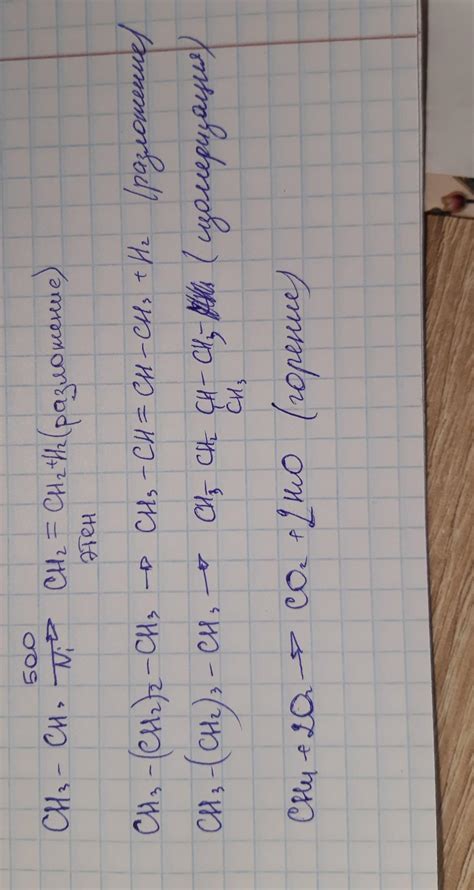 500
CH₃ – CH₃ → CH₂ = CH₂ + H₂ (разложение)
Ni
этен
CH₃ – (CH₂)₂ – CH₃ → CH₃ – CH = CH – CH₃ + H₂ (разложение)
CH₃ – (CH₂)₃ – CH₃ → CH₃ CH₂ CH – CH₃ – (изомеризация)
CH₃
CH₄ + 2O₂ → CO₂ + 2H₂O (горение)